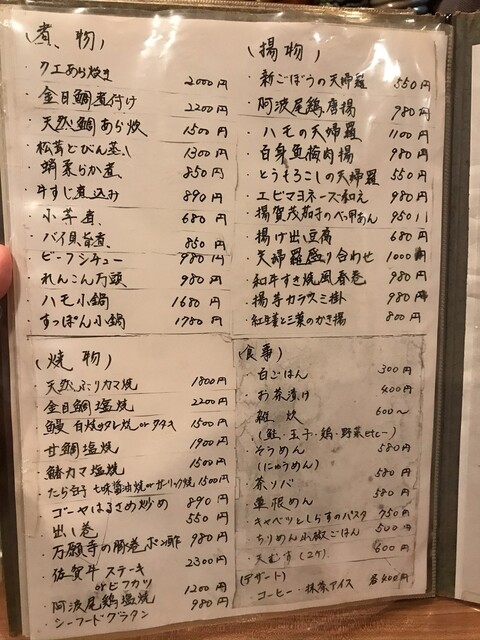 (煮、物)
・クエあら炊き 2000円
・金目鯛煮付け 2200円
・天然鯛あら炊 1500円
・松茸どびん蒸し 1300円
・蛸柔らか煮 850円
・牛すじ煮込み 890円
・小芋煮 680円
・バイ貝旨煮 850円
・ビーフシチュー 980円
・れんこん万頭 980円
・ハモ小鍋 1680円
・すっぽん小鍋 1780円
(揚物)
・新ごぼうの天婦羅 550円
・阿波尾鶏唐揚 980円
・ハモの天婦羅 1100円
・白身魚梅肉揚 980円
・とうもろこしの天婦羅 550円
・エビマヨネーズ和え 980円
・揚賀茂茄子のべっ甲あん 950円
・揚げ出し豆腐 680円
・天婦羅盛り合わせ 1000円
・和牛すき焼風春巻 980円
・揚芋カラスミ掛 980円
・紅生姜と三葉のかき揚 800円
(焼物)
・天然ぶりカマ焼 1800円
・金目鯛塩焼 2200円
・鰻 白焼orタレ焼orタタキ 1500円
・甘鯛塩焼 1900円
・鰆カマ塩焼 1500円
・たら白子 七味醤油焼orガーリック焼 1500円
・ゴーヤはるさめ炒め 890円
・出し巻 550円
・万願寺の豚巻ポン酢 980円
・佐賀牛ステーキ 2300円
orビフカツ
・阿波尾鶏塩焼 1200円
・シーフードグラタン 980円
(食事)
・白ごはん 300円
・お茶漬け 400円
・雑炊 600〜
(鮭・玉子・鶏・野菜etc〜)
・そうめん 580円
(にゅうめん)
・茶ソバ 580円
・蓮根めん 580円
・キャベツとしらすのパスタ 750円
・ちりめん小松ごはん 500円
・天むす(2ヶ) 600円
(デザート)
・コーヒー・抹茶アイス 各400円